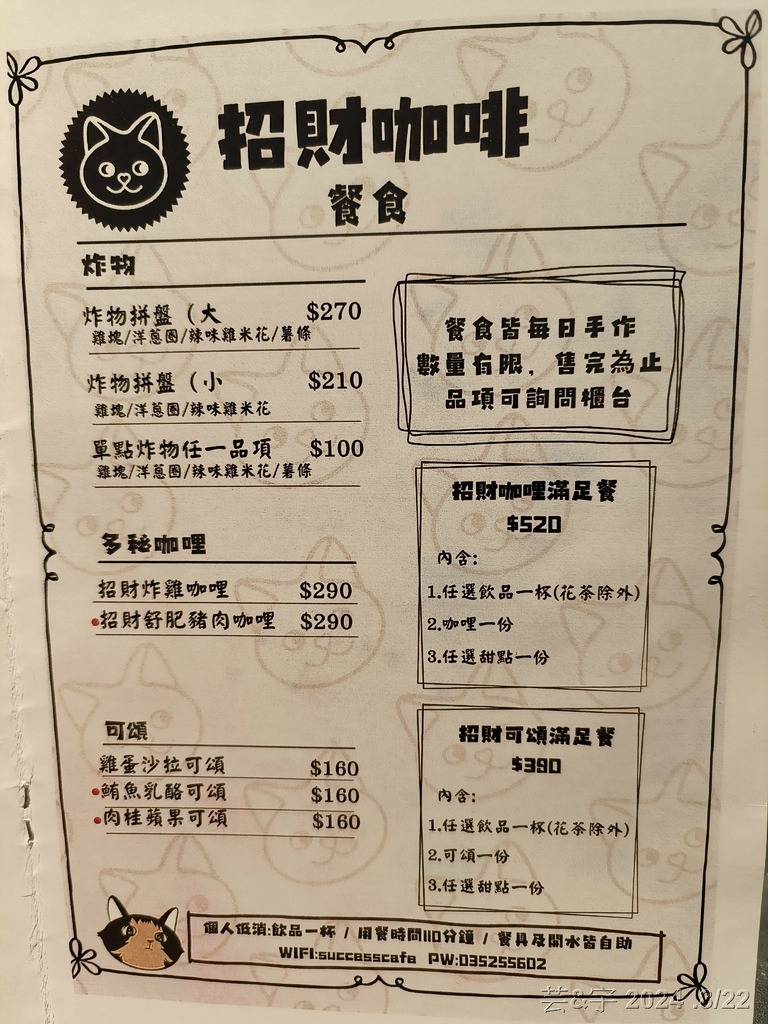 招財咖啡
餐食
炸物
炸物拼盤（大 $270
雞塊/洋蔥圈/辣味雞米花/薯條
炸物拼盤（小 $210
雞塊/洋蔥圈/辣味雞米花
單點炸物任一品項 $100
雞塊/洋蔥圈/辣味雞米花/薯條
多秘咖哩
招財炸雞咖哩 $290
招財舒肥豬肉咖哩 $290
可頌
雞蛋沙拉可頌 $160
鮪魚乳酪可頌 $160
肉桂蘋果可頌 $160
餐食皆每日手作
數量有限，售完為止
品項可詢問櫃台
招財咖哩滿足餐
$520
內含:
1.任選飲品一杯(花茶除外)
2.咖哩一份
3.任選甜點一份
招財可頌滿足餐
$390
內含:
1.任選飲品一杯(花茶除外)
2.可頌一份
3.任選甜點一份
個人低消:飲品一杯 / 用餐時間110分鐘 / 餐具及開水皆自助
WIFI:successcafe PW:035255602
芸&宇 2024 .8/22